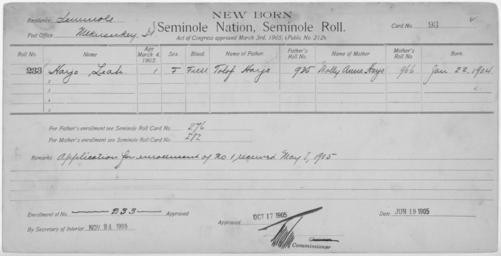 NEW BORN
Residence Seminole
Seminole Nation, Seminole Roll.
Card No. 93
Post Office
Act of Congress approved March 3rd, 1905, (Public No. 212).
Roll No. Name Age March 4, 1905 Sex Blood Name of Father Father's Roll No. Name of Mother Mother's Roll No. Born.
233 Harjo, Leah 1 F Full Tolof Harjo 925 Molly Anna Harjo 966 Jan 22, 1904
For Father's enrollment see Seminole Roll Card No. 276
For Mother's enrollment see Seminole Roll Card No. 292
Remarks Application for enrollment of No. 1 received May 1, 1905
Enrollment of No. 233 Approved
Approved OCT 17 1905
Date JUN 19 1905
By Secretary of Interior NOV 24 1905
Commissioner